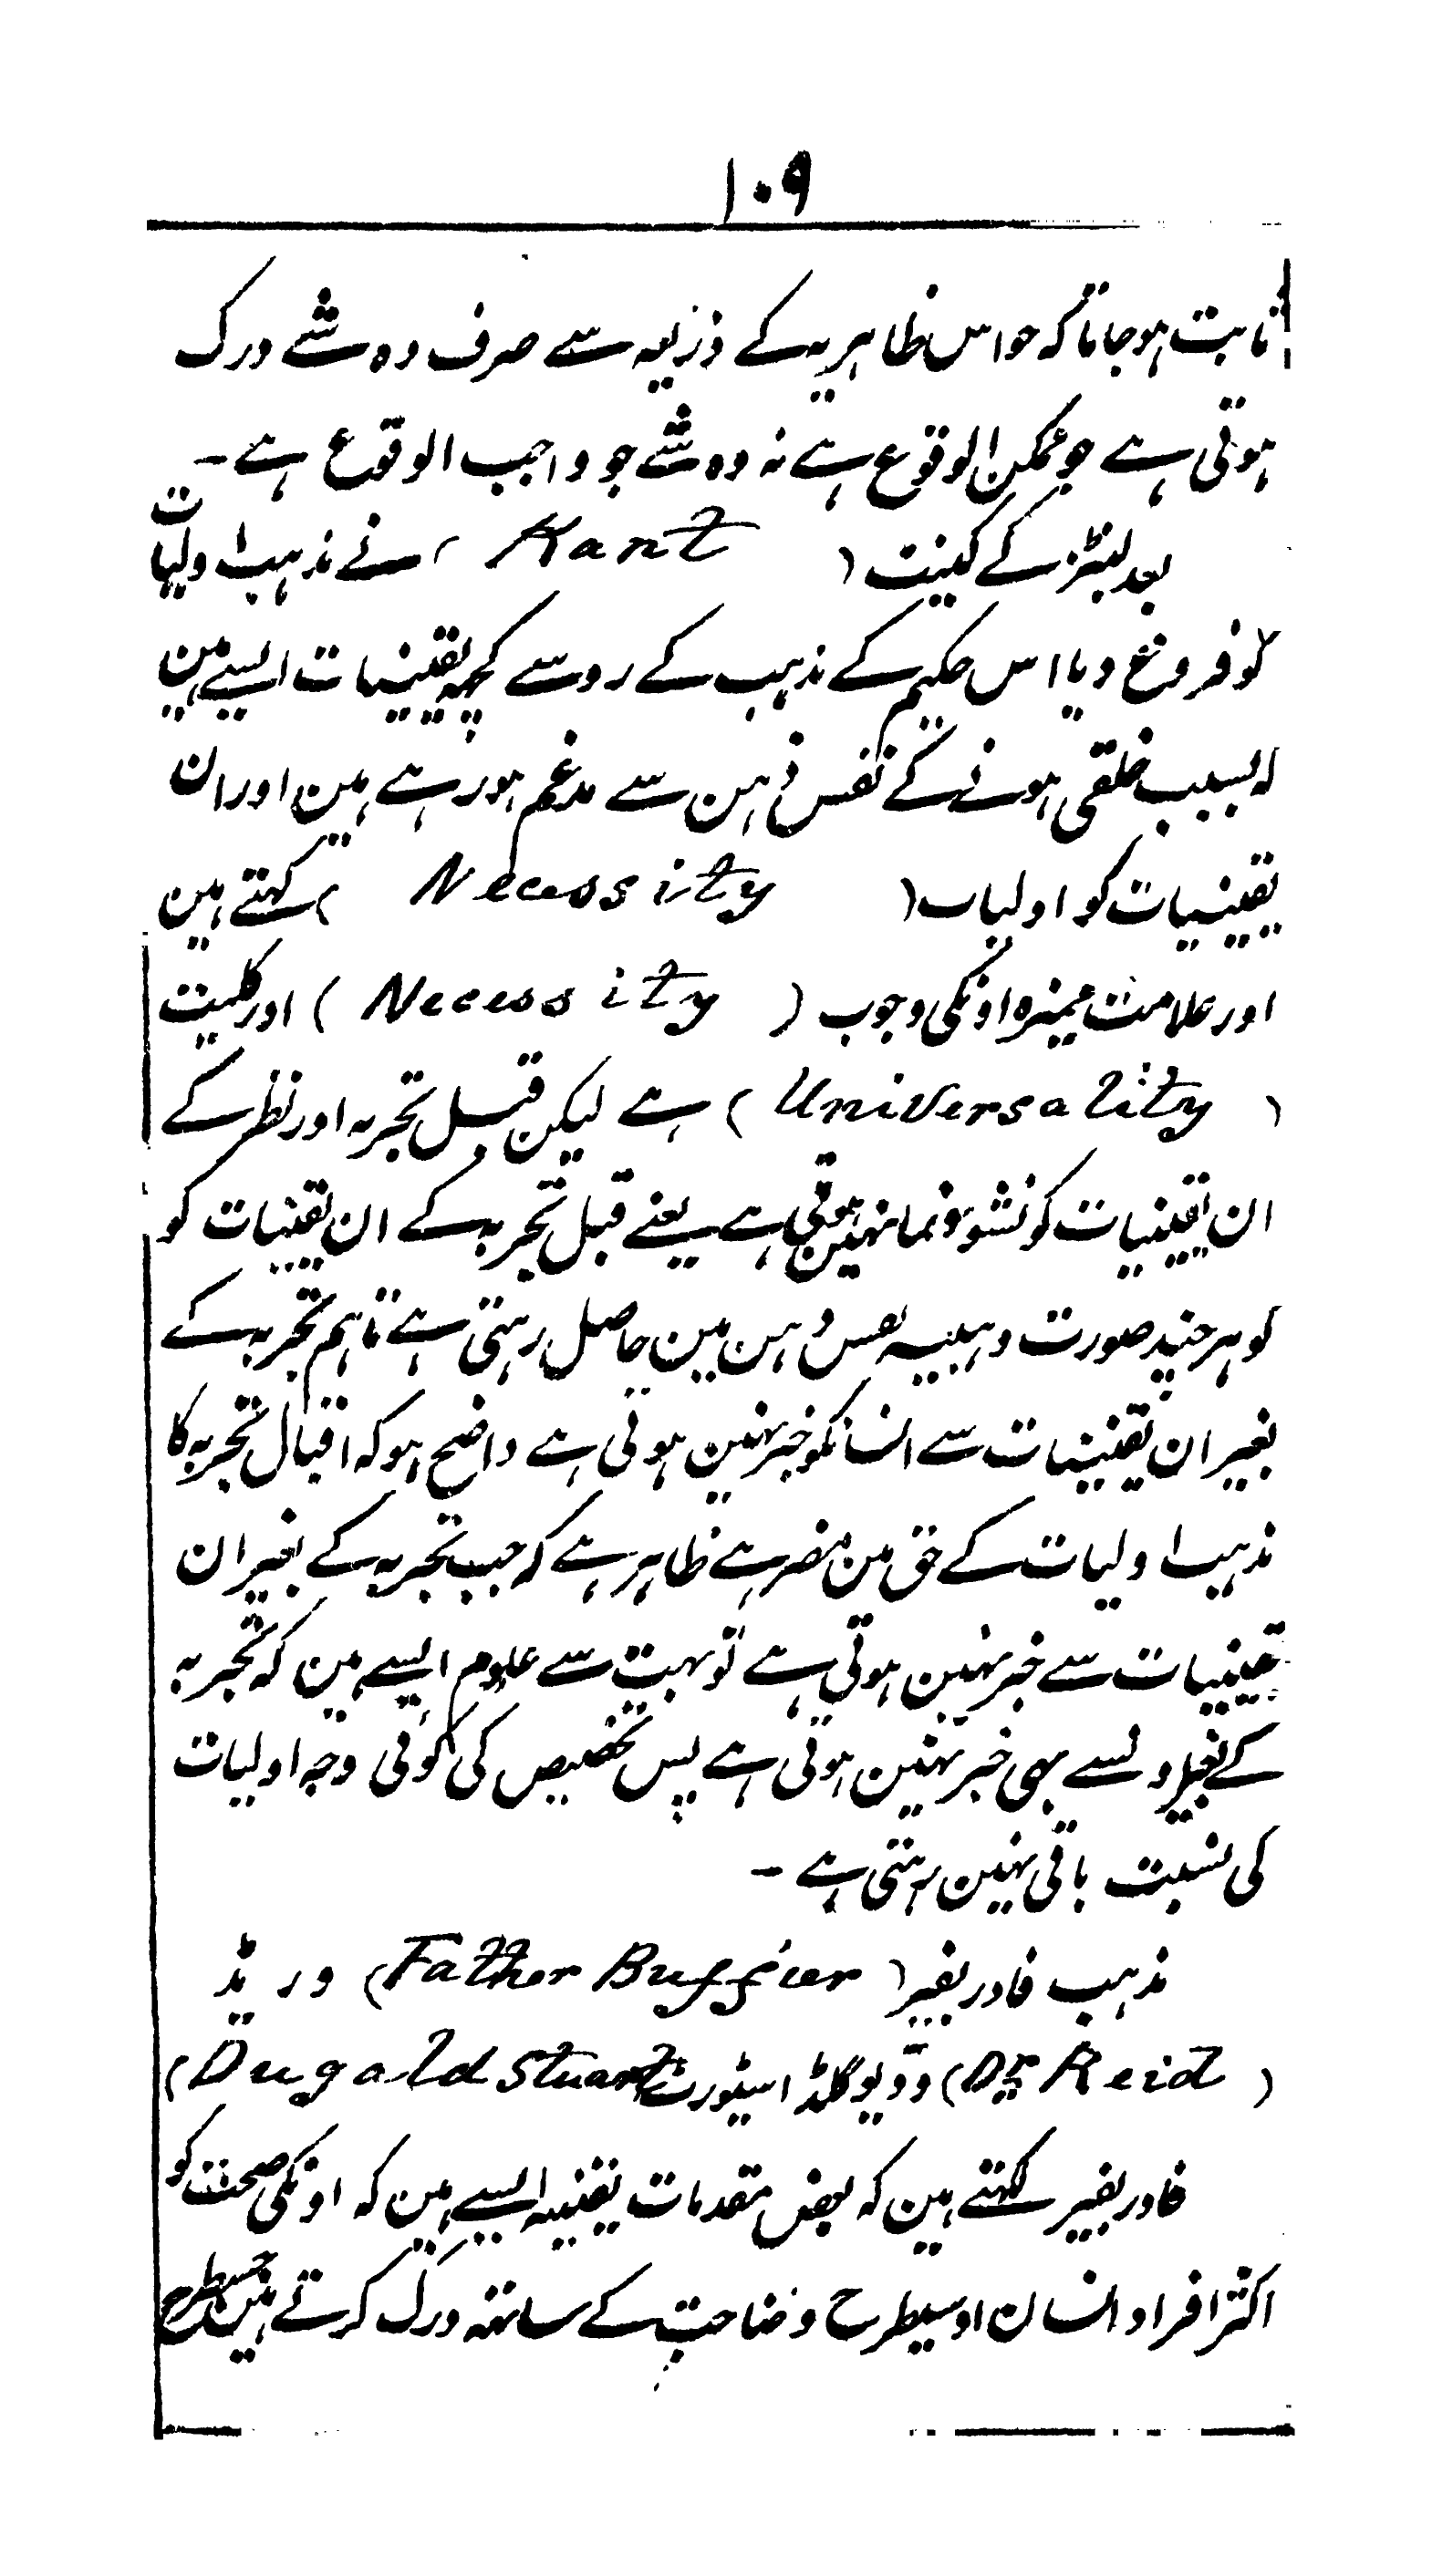 ۱۰۹
ثابت ہوجاتا کہ حواس ظاہریہ کے ذریعہ سے صرف وہ شے درک
ہوتی ہے جو ممکن الوقوع ہے نہ وہ شے جو واجب الوقوع ہے ۔
بعد لبنٹز کے کینٹ ( Kant ) نے مذہب اولیات
کو فروغ دیا اس حکیم کے مذہب کے روسے کچھہ یقینیات ایسے ہین
کہ بسبب خلقی ہونے کے نفس ذہن سے مدغم ہورہے ہین اور ان
یقینیات کو اولیات ( Necessity ) کہتے ہین
اور علامت ممیزہ اونکی وجوب ( Necessity ) اور کلیت
( Universality ) ہے لیکن قبل تجربہ اور نظر کے
ان یقینیات کو نشوونما نہین ہوتی ہے یعنے قبل تجربہ کے ان یقینیات کو
کو ہر چند صورت وہبیہ نفس ذہن مین حاصل رہتی ہے تاہم تجربہ کے
بغیر ان یقینیات سے انسانکو خبر نہین ہوتی ہے واضح ہو کہ اقبال تجربہ کا
مذہب اولیات کے حق مین مضر ہے ظاہر ہے کہ جب تجربہ کے بغیر ان
یقینیات سے خبر نہین ہوتی ہے تو بہت سے علوم ایسے ہین کہ تجربہ
کے بغیر اونسے بھی خبر نہین ہوتی ہے پس تخصیص کی کوئی وجہ اولیات
کی نسبت باقی نہین رہتی ہے ۔
مذہب فادر بفیر ( Father Buffier ) و ریڈ
( Dr Reid ) و ڈیوگلڈ اسٹورٹ ( Dugald Stuart )
فادر بفیر کہتے ہین کہ بعض مقدمات یقینیہ ایسے ہین کہ اونکی صحت کو
اکثر افراد انسان اوسیطرح وضاحت کے ساتھہ درک کرتے ہین جسطرح